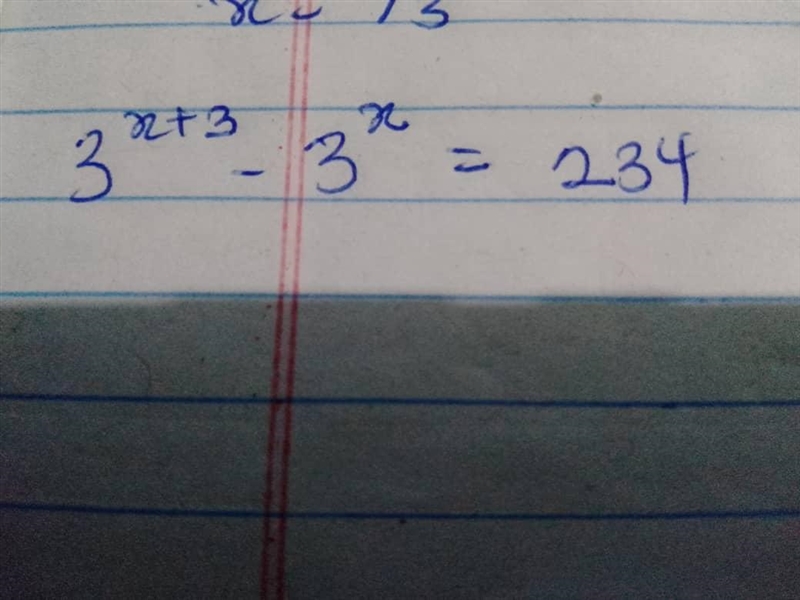 3^{x+3} - 3^x = 234